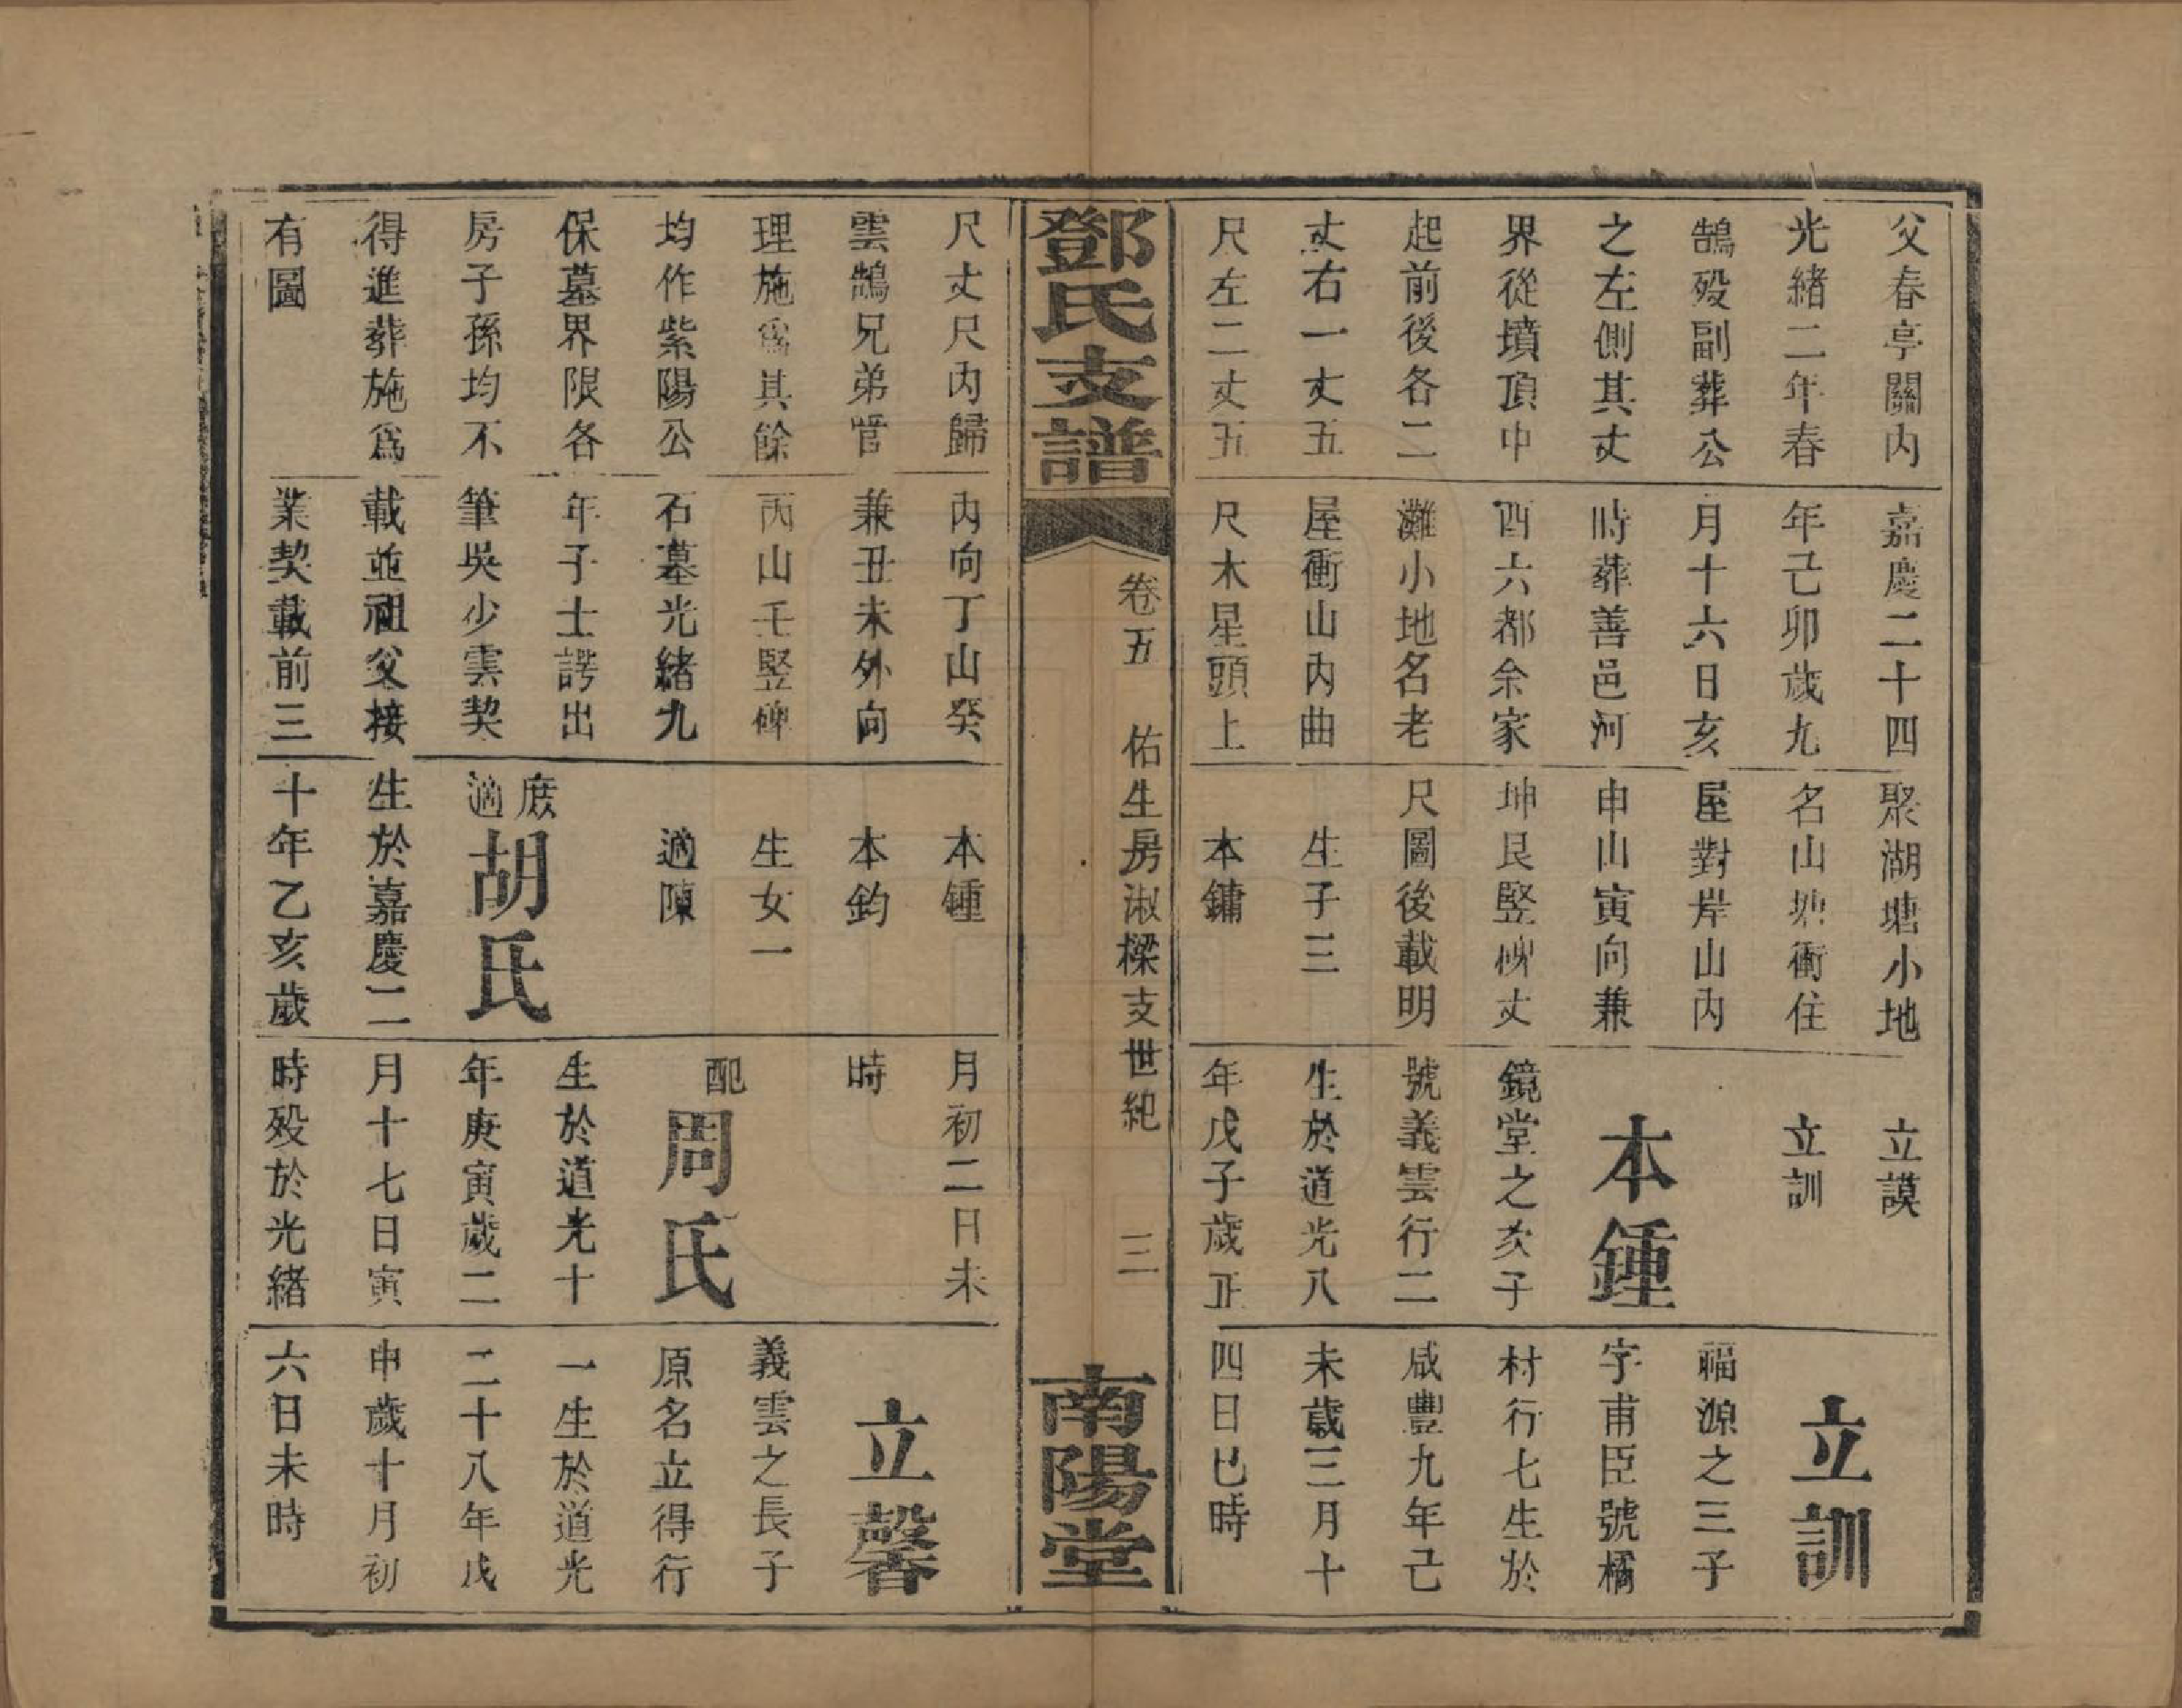 父春亭關内
光緒二年春
鵠殁副葬公
之左側其丈
界從墳頂中
起前後各二
丈右一丈五
尺左二丈五
嘉慶二十四
年己卯歲九
月十六日亥
時葬善邑河
西六都余家
灘小地名老
屋衝山内曲
尺木星頭上
聚湖塘小地
名山塘衝住
屋對岸山内
申山寅向兼
坤艮竪碑丈
尺圖後載明
生子三
本鏞
立謨
立訓
本鍾
鏡堂之次子
號義雲行二
生於道光八
年戊子歲正
立訓
福源之三子
字甫臣號橘
村行七生於
咸豐九年己
未歲三月十
四日巳時
鄧氏支譜
卷五 佑生房淑樑支世紀 三
南陽堂
尺丈尺内歸
雲鵠兄弟管
理施爲其餘
均作紫陽公
保墓界限各
房子孫均不
得進葬施爲
有圖
内向丁山癸
兼丑未外向
丙山壬竪碑
石墓光緒九
年子士諤出
筆吳少雲契
載並祖父接
業契載前三
本鍾
本鈞
生女一
適陳
庶適胡氏
生於嘉慶二
十年乙亥歲
月初二日未
時
配周氏
生於道光十
年庚寅歲二
月十七日寅
時殁於光緒
立馨
義雲之長子
原名立得行
一生於道光
二十八年戊
申歲十月初
六日未時